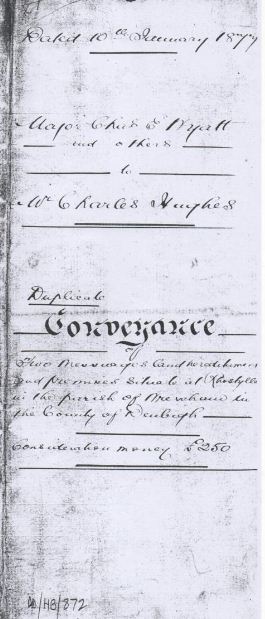 Dated 10th January 1877
Major Chas E Wyatt
and others
to
Mr Charles Hughes
Duplicate
Conveyance
of
Two Messuages land hereditaments
and premises situate at
in the parish of in
the County of Denbigh
Consideration money £250
/HB/872